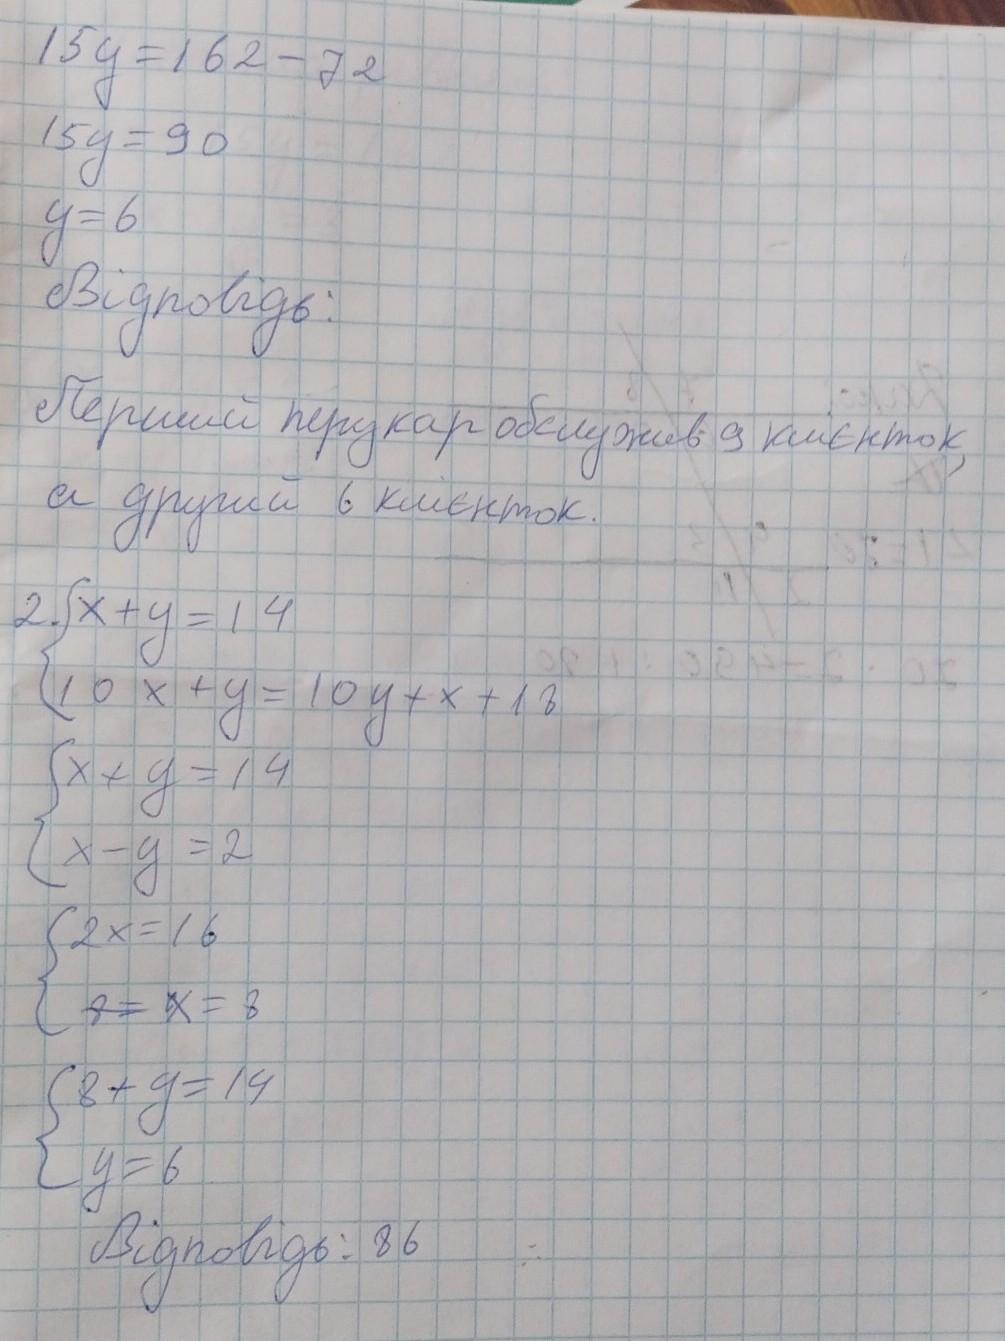 15y=162-72
15y=90
y=6
Відповідь:
Перший перукар обслужив 9 клієнток,
а другий 6 клієнток.
2. x+y=14
10x+y=10y+x+18
x+y=14
x-y=2
2x=16
x=8
8+y=14
y=6
Відповідь: 86